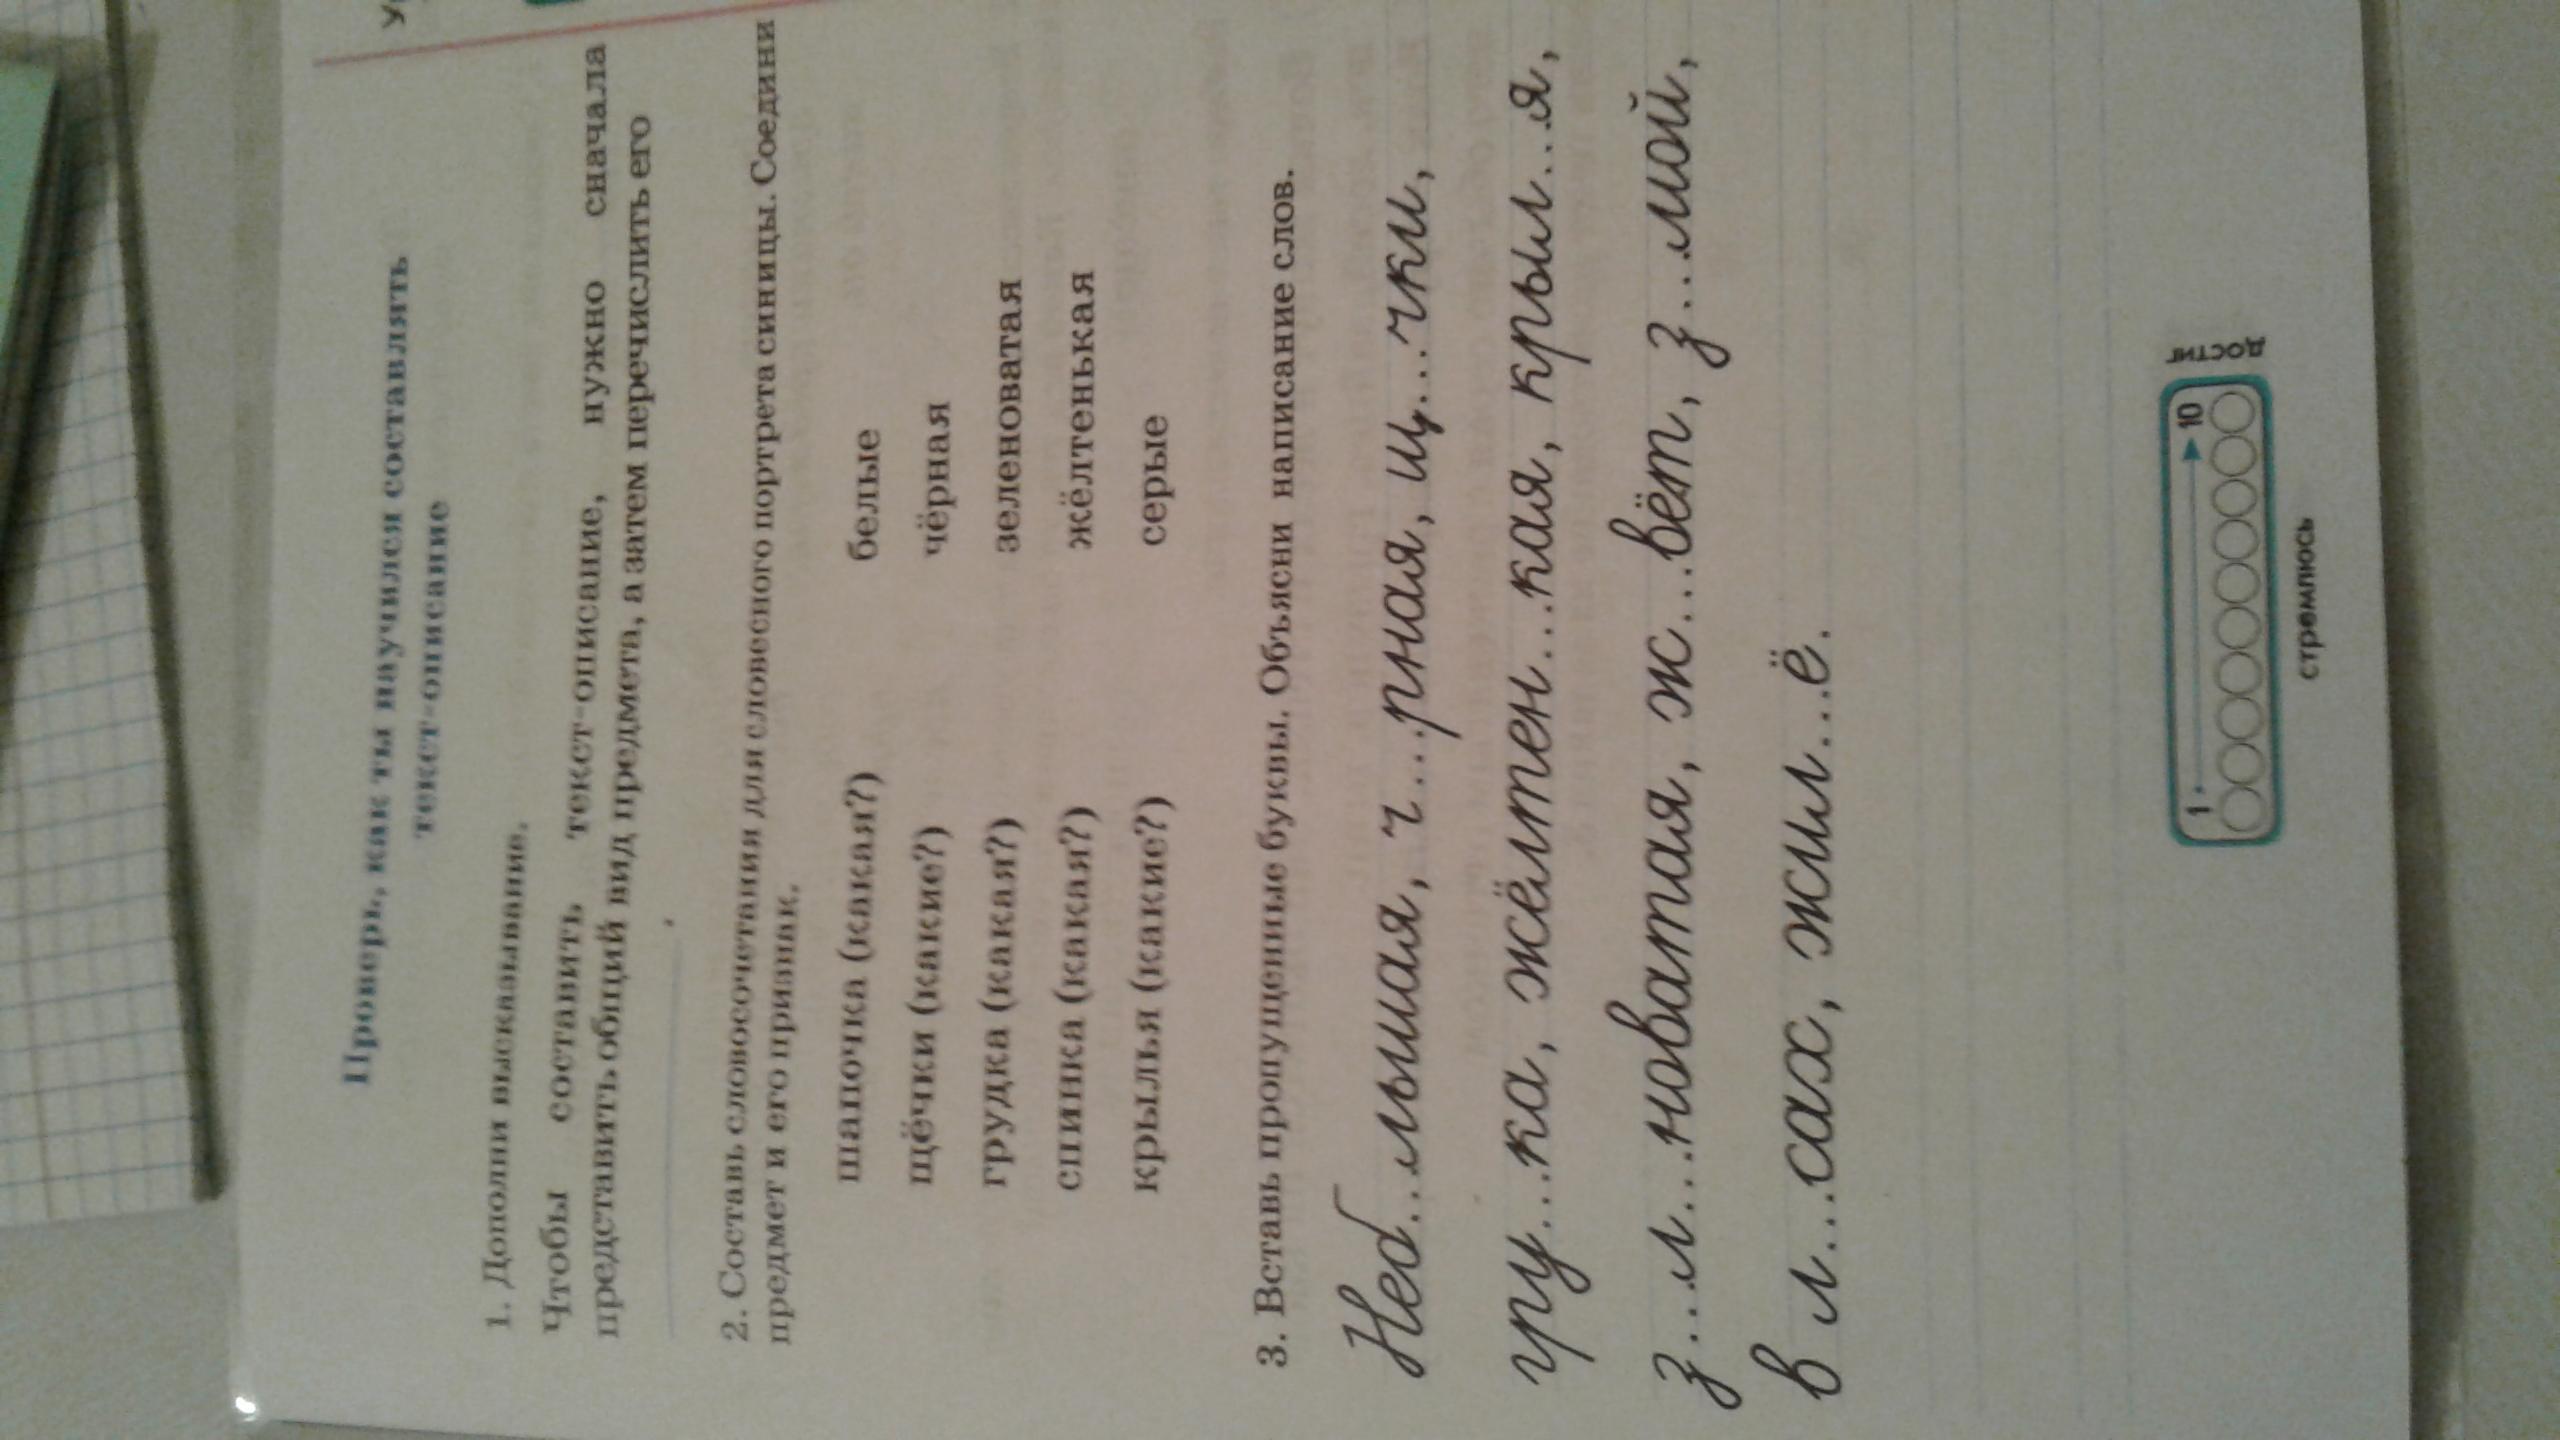 Проверь, как ты научился составлять
текст-описание
1. Дополни высказывание.
Чтобы составить текст-описание, нужно сначала
представить общий вид предмета, а затем перечислить его
.
2. Составь словосочетания для словесного портрета синицы. Соедини
предмет и его признак.
шапочка (какая?) белые
щёчки (какие?) чёрная
грудка (какая?) зеленоватая
спинка (какая?) жёлтенькая
крылья (какие?) серые
3. Вставь пропущенные буквы. Объясни написание слов.
Неб...льшая, ч...рная, щ...чки,
гру...ка, жёлтен...кая, крыл...я,
з...л...новатая, ж...вёт, з...мой,
в л...сах, жил...ё.
1 10
достиг
стремлюсь